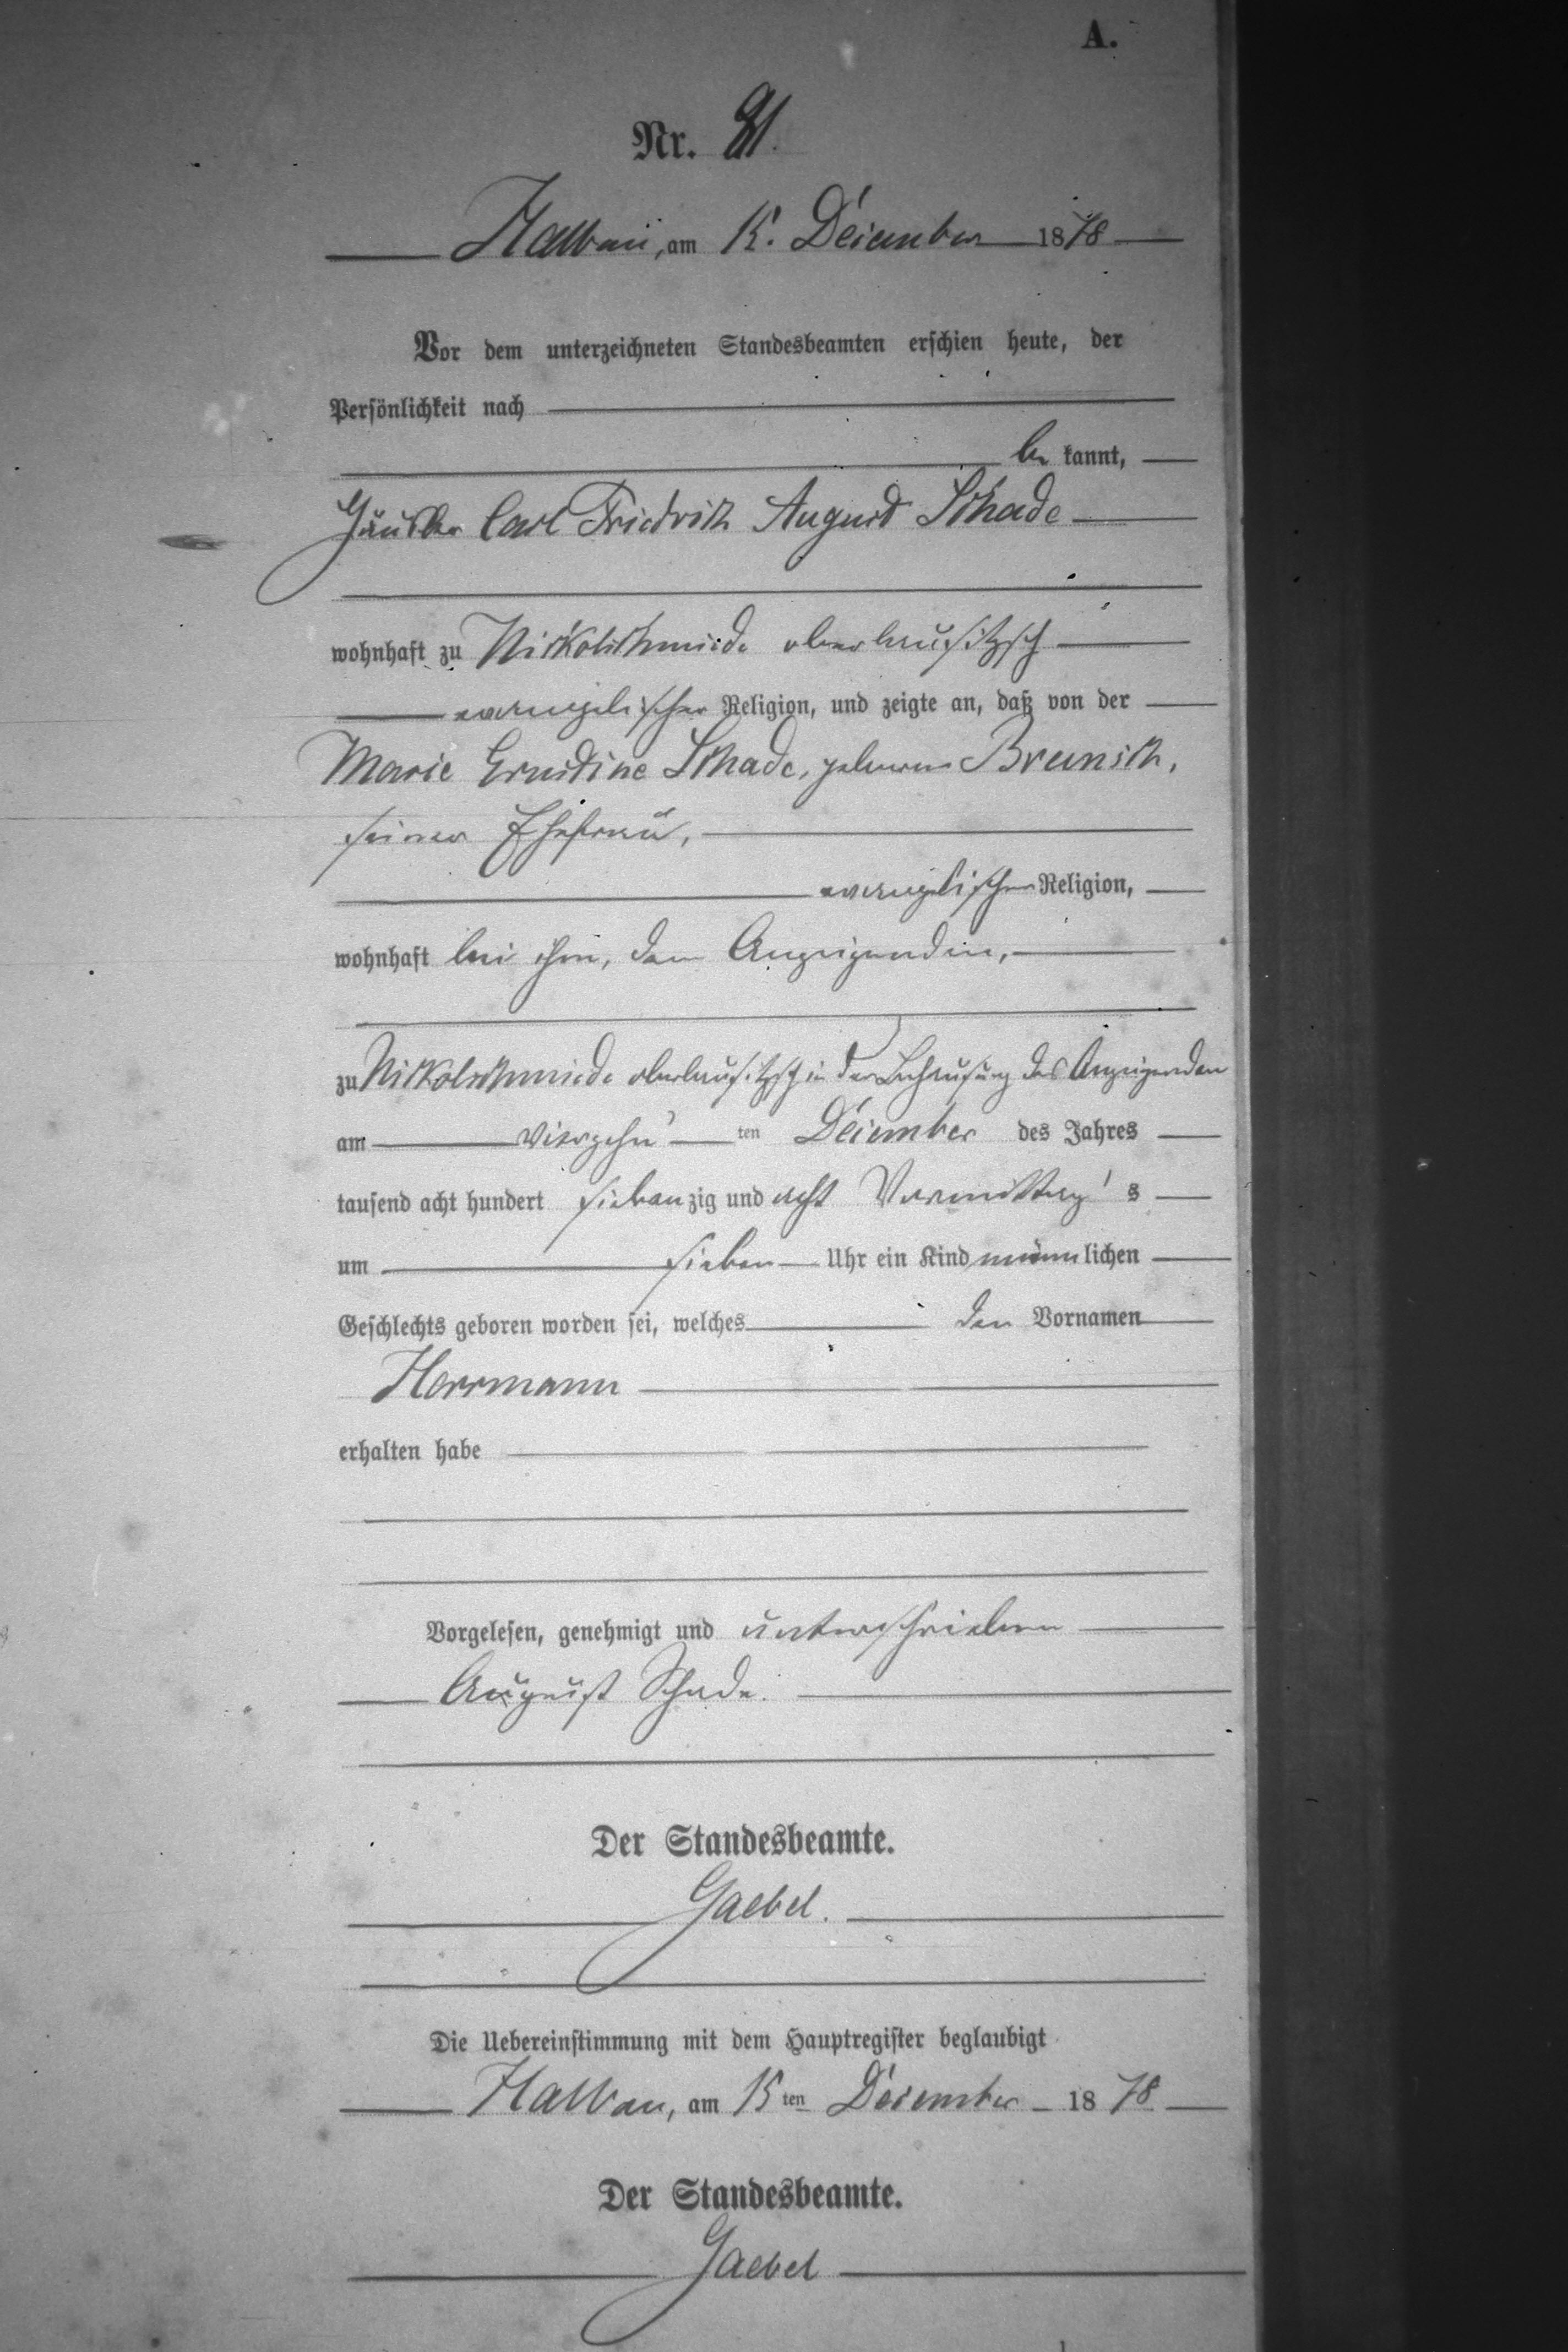 A.
Nr. 91.
Halbau, am 15. December 1878
Vor dem unterzeichneten Standesbeamten erschien heute, der
Persönlichkeit nach
be kannt,
Häusler Carl Friedrich August Schade
wohnhaft zu Nickolschmiede oberlausitzsch
evangelischer Religion, und zeigte an, daß von der
Marie Ernestine Schade, geborene Brunsch,
seiner Ehefrau,
evangelischer Religion,
wohnhaft bei ihm, dem Anzeigenden,
zu Nickolschmiede oberlausitzsch in der Behausung des Anzeigenden
am vierzehn ten December des Jahres
tausend acht hundert sieben zig und acht Vormittag s
um sieben Uhr ein Kind männ lichen
Geschlechts geboren worden sei, welches den Vornamen
Herrmann
erhalten habe
Vorgelesen, genehmigt und unterschrieben
August Schade.
Der Standesbeamte.
Gaebel.
Die Uebereinstimmung mit dem Hauptregister beglaubigt
Halbau, am 15 ten December 1878
Der Standesbeamte.
Gaebel